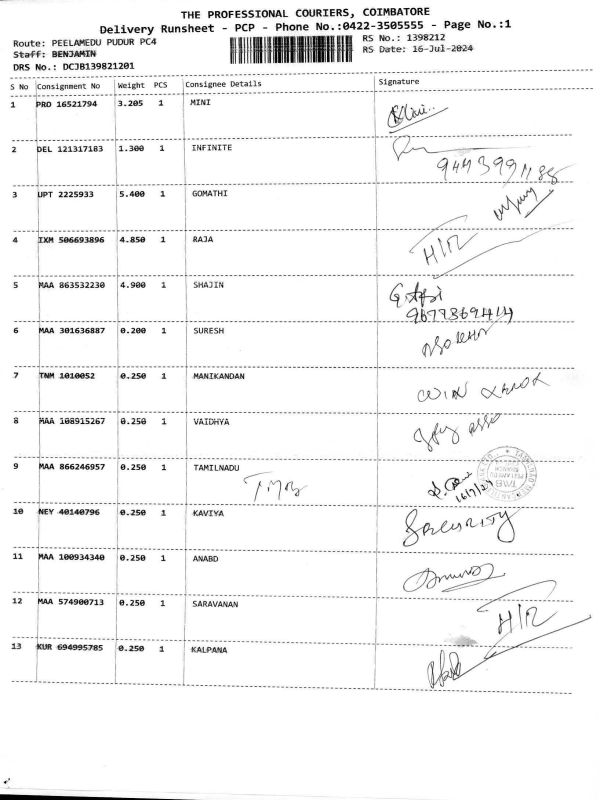 THE PROFESSIONAL COURIERS, COIMBATORE
Delivery Runsheet - PCP - Phone No.:0422-3505555 - Page No.:1
Route: PEELAMEDU PUDUR PC4
RS No.: 1398212
Staff: BENJAMIN
RS Date: 16-Jul-2024
DRS No.: DCJB139821201
S No Consignment No Weight PCS Consignee Details Signature
1 PRO 16521794 3.205 1 MINI
2 DEL 121317183 1.300 1 INFINITE
3 UPT 2225933 5.400 1 GOMATHI
4 IXM 506693896 4.850 1 RAJA H/R
5 MAA 863532230 4.900 1 SHAJIN
9677869414
6 MAA 301636887 0.200 1 SURESH
7 TNM 1010052 0.250 1 MANIKANDAN WIN
8 MAA 108915267 0.250 1 VAIDHYA
9 MAA 866246957 0.250 1 TAMILNADU
16/7/24
10 NEY 40140796 0.250 1 KAVIYA SECURITY
11 MAA 100934340 0.250 1 ANABD
12 MAA 574900713 0.250 1 SARAVANAN H/R
13 KUR 694995785 0.250 1 KALPANA